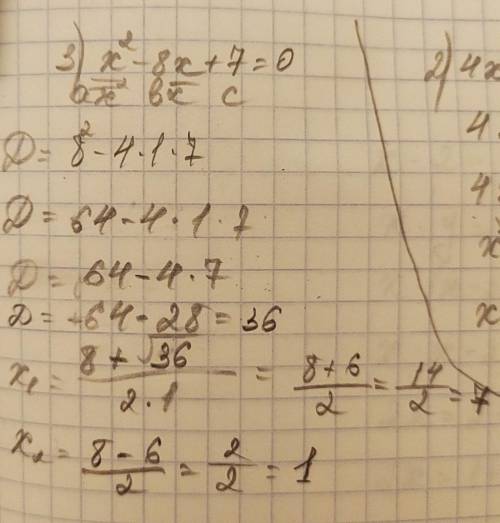 3) x² - 8x + 7 = 0
ax² bx c
D = 8² - 4 · 1 · 7
D = 64 - 4 · 1 · 7
D = 64 - 4 · 7
D = -64 - 28 = 36
x₁ = (8 + √36)/(2 · 1) = (8 + 6)/2 = 14/2 = 7
x₂ = (8 - 6)/2 = 2/2 = 1
2) 4x
4.
4.
x
x